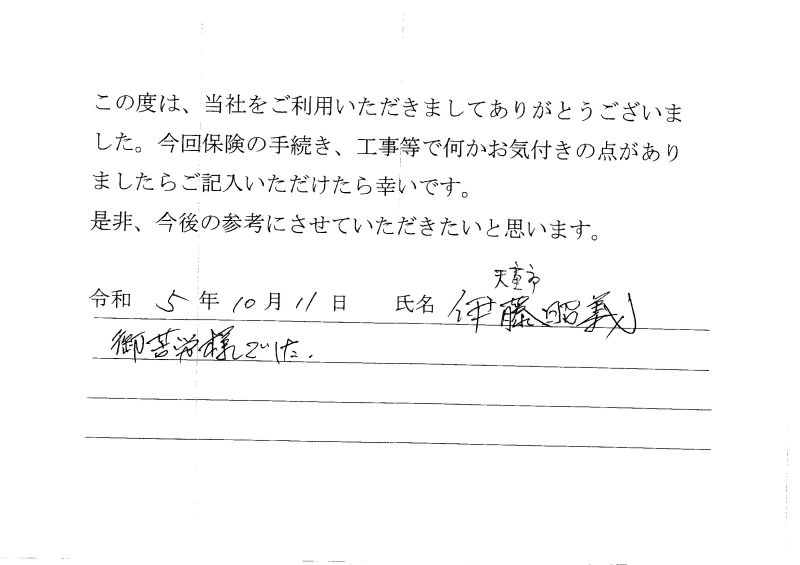 この度は、当社をご利用いただきましてありがとうございま
した。今回保険の手続き、工事等で何かお気付きの点があり
ましたらご記入いただけたら幸いです。
是非、今後の参考にさせていただきたいと思います。
天童市
令和 5 年 10 月 11 日 氏名 伊藤昭義
御苦労様でした.